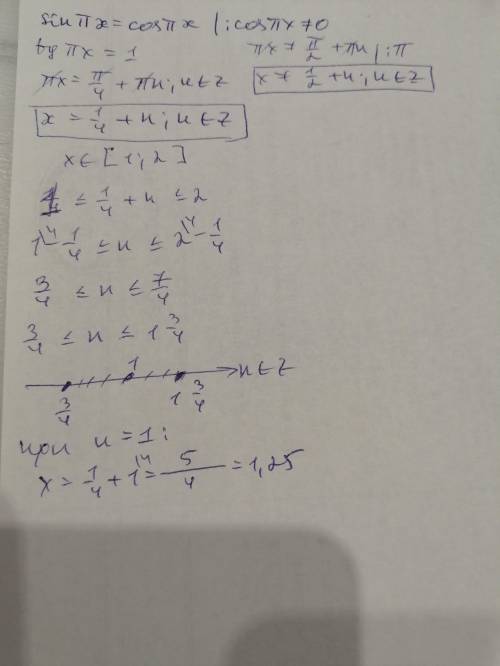 sin πx = cos πx | : cos πx ≠ 0
tg πx = 1 πx ≠ π/2 + πn | : π
πx = π/4 + πn; n ∈ Z x ≠ 1/2 + n; n ∈ Z
x = 1/4 + n; n ∈ Z
x ∈ [1; 2]
1 ≤ 1/4 + n ≤ 2
1\4 - 1/4 ≤ n ≤ 2\4 - 1/4
3/4 ≤ n ≤ 7/4
3/4 ≤ n ≤ 1 3/4
1 n ∈ Z
3/4 1 3/4
при n = 1:
x = 1/4 + 1\4 = 5/4 = 1,25